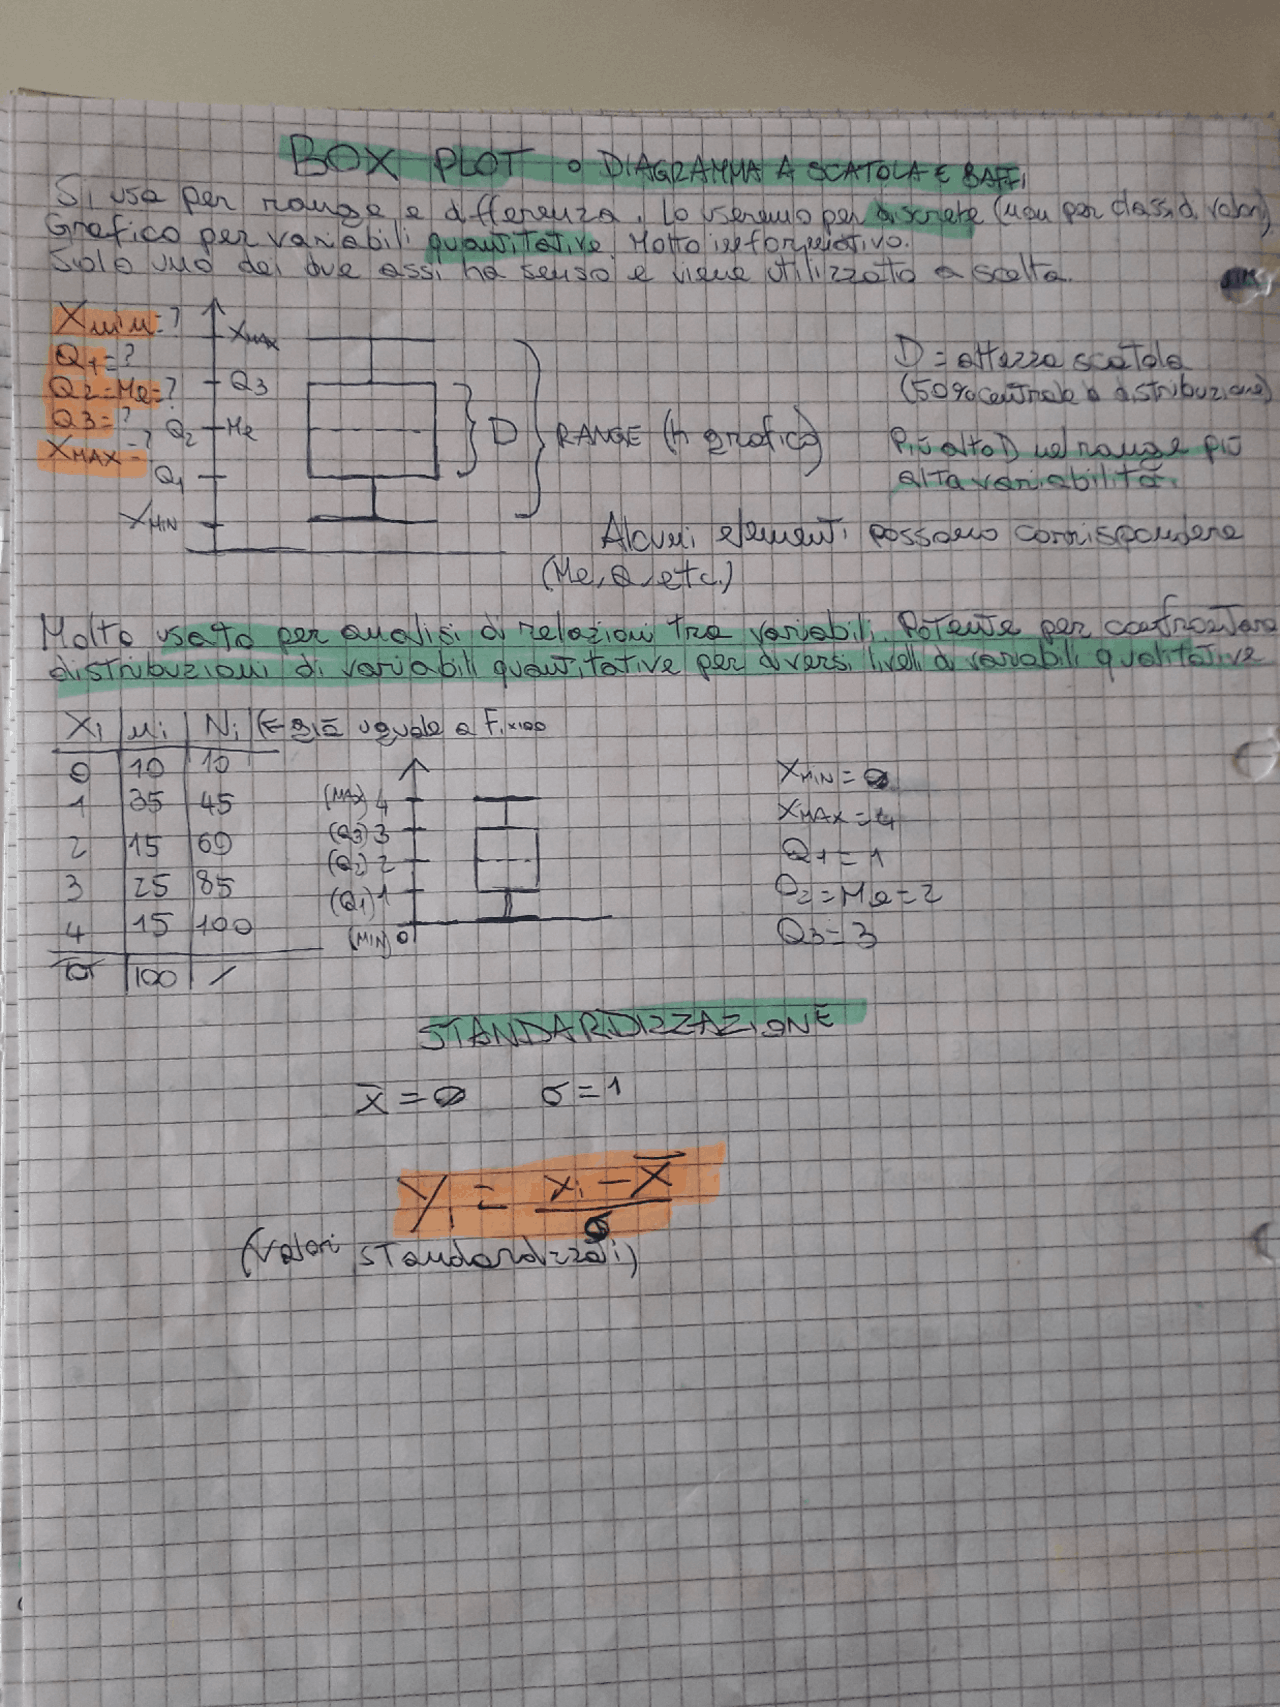 BOX PLOT o DIAGRAMMA A SCATOLA E BAFFI
Si usa per range e differenza. Lo useremo per discrete (non per classi di valori)
Grafico per variabili quantitative. Molto informativo.
Solo uno dei due assi ha senso e viene utilizzato a scelta.
Xmin=?
Q1=?
Q2=Me=?
Q3=?
XMAX=?
XMAX
Q3
Q2 Me
Q1
XMIN
D
RANGE (h grafico)
D = altezza scatola
(50% centrale di distribuzione)
Più alto D nel range più
alta variabilità.
Alcuni elementi possono corrispondere
(Me, Q, etc.)
Molto usato per analisi di relazioni tra variabili. Potente per confrontare
distribuzioni di variabili quantitative per diversi livelli di variabili qualitative
Xi ni Ni (È già uguale a Fix100
0 10 10
1 35 45
2 15 60
3 25 85
4 15 100
TOT 100 /
(MAX) 4
(Q3) 3
(Q2) 2
(Q1) 1
(MIN) 0
XMIN = 0
XMAX = 4
Q1 = 1
Q2 = Me = 2
Q3 = 3
STANDARDIZZAZIONE
x̄ = 0 σ = 1
Yi = xi - x̄
σ
(valori standardizzati)